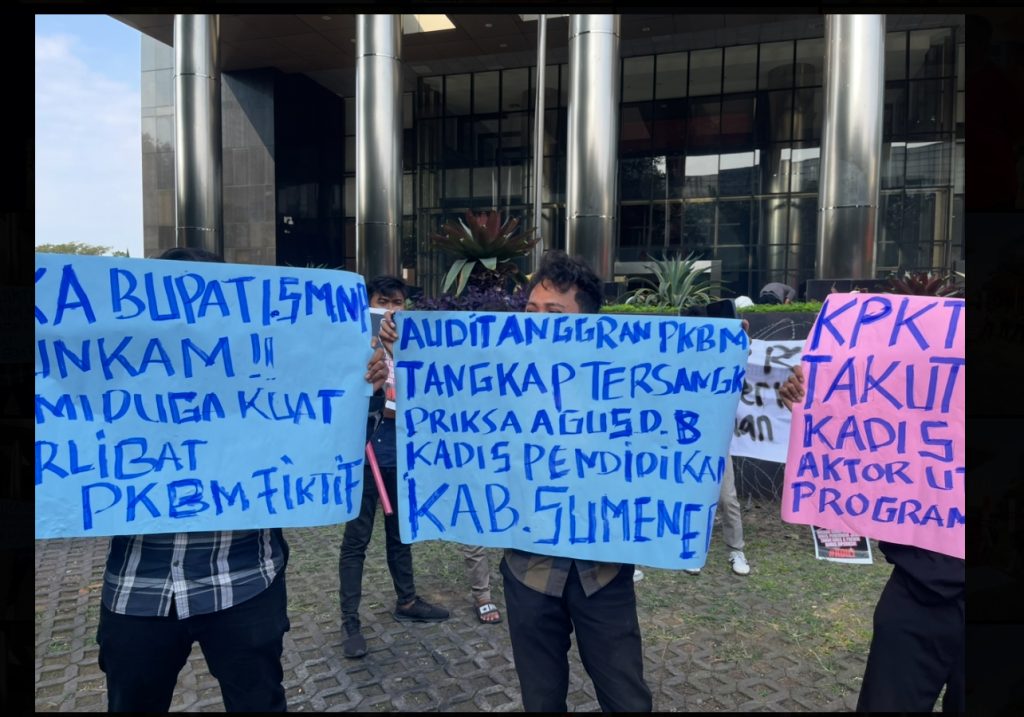 KA BUPATI.SMNP
UNKAM !!
MIDUGA KUAT
RLIBAT
PKBM FIKTIF
AUDITANGGRAN PKBM
TANGKAP TERSANGK
PRIKSA AGUS.D.B
KADIS PENDIDIKAN
KAB. SUMENEP
KPKT
TAKUT
KADIS
AKTOR UT
PROGRAM